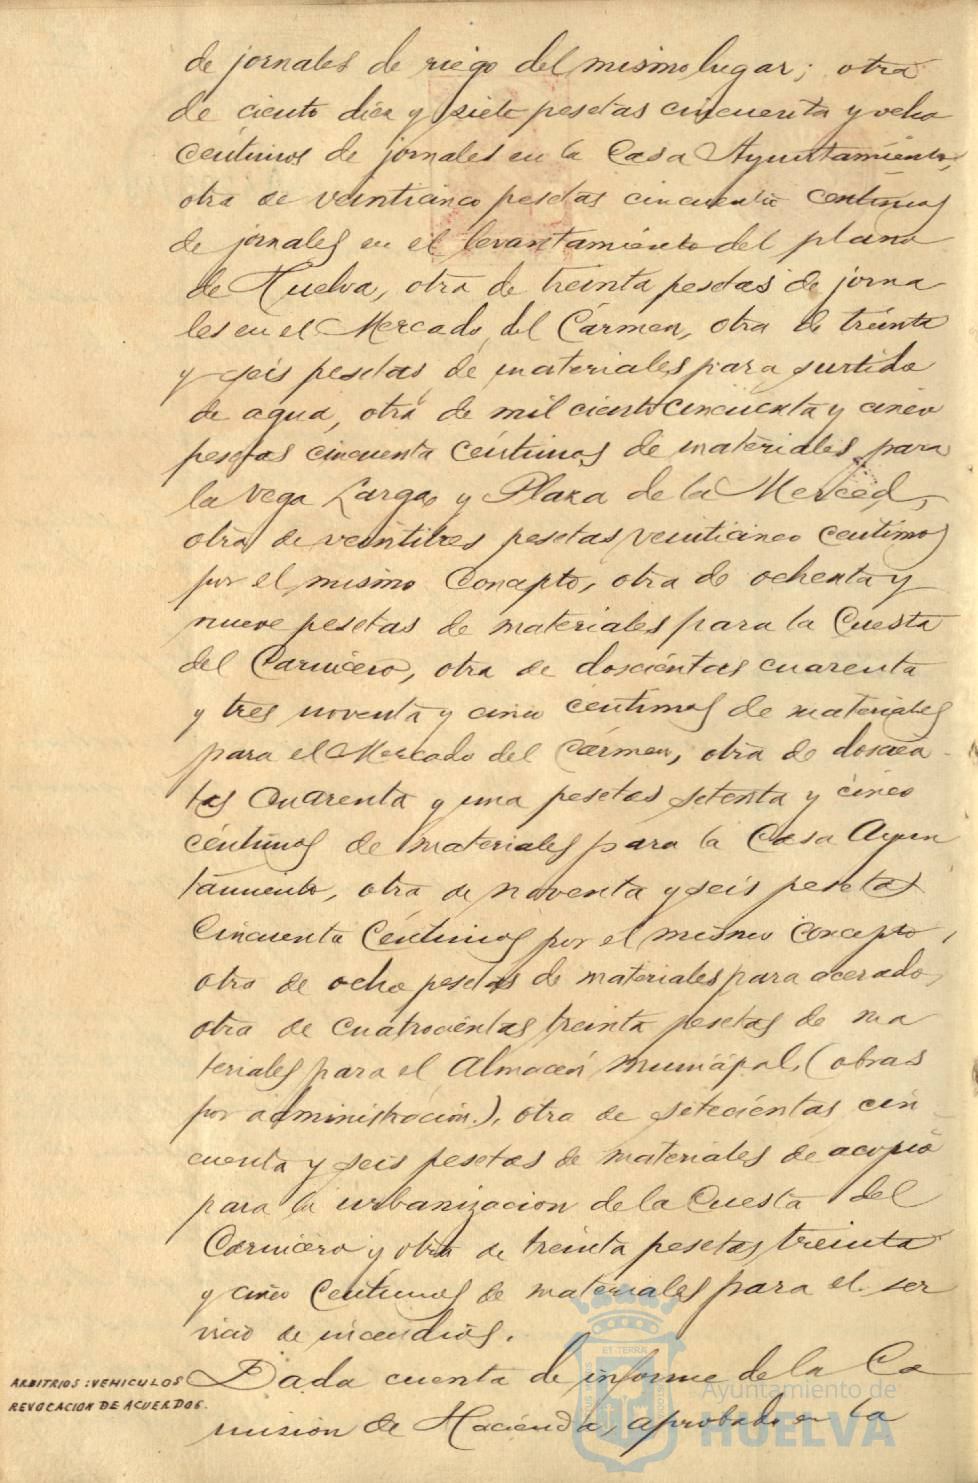 de jornales de riego del mismo lugar; otra
de ciento diez y siete pesetas cincuenta y ocho
céntimos de jornales en la Casa Ayuntamiento,
otra de veinticinco pesetas cincuenta centimos
de jornales en el levantamiento del plano
de Huelva, otra de treinta pesetas de jorna
les en el Mercado del Cármen, otra de treinta
y seis pesetas de materiales para surtido
de agua, otra de mil ciento cincuenta y cinco
pesetas cincuenta céntimos de materiales para
la Vega Larga y Plaza de la Merced,
otra de veintitres pesetas veinticinco centimos
por el mismo concepto, otra de ochenta y
nueve pesetas de materiales para la Cuesta
del Carnicero, otra de doscientas cuarenta
y tres noventa y cinco centimos de materiales
para el Mercado del Cármen, otra de doscien-
tas cuarenta y una pesetas setenta y cinco
céntimos de materiales para la Casa Ayun
tamiento, otra de noventa y seis pesetas
cincuenta céntimos por el mismo concepto,
otra de ocho pesetas de materiales para acerado,
otra de cuatrocientas treinta pesetas de ma
teriales para el Almacén municipal, (obras
por administración.), otra de setecientas cin-
cuenta y seis pesetas de materiales de acopio
para la urbanizacion de la Cuesta del
Carnicero y otra de treinta pesetas treinta
y cinco centimos de materiales para el ser
vicio de incendios.
ARBITRIOS: VEHICULOS
REVOCACION DE ACUERDOS.
Dada cuenta de informe de la Co
mision de Hacienda, aprobado en la
Ayuntamiento de
HUELVA